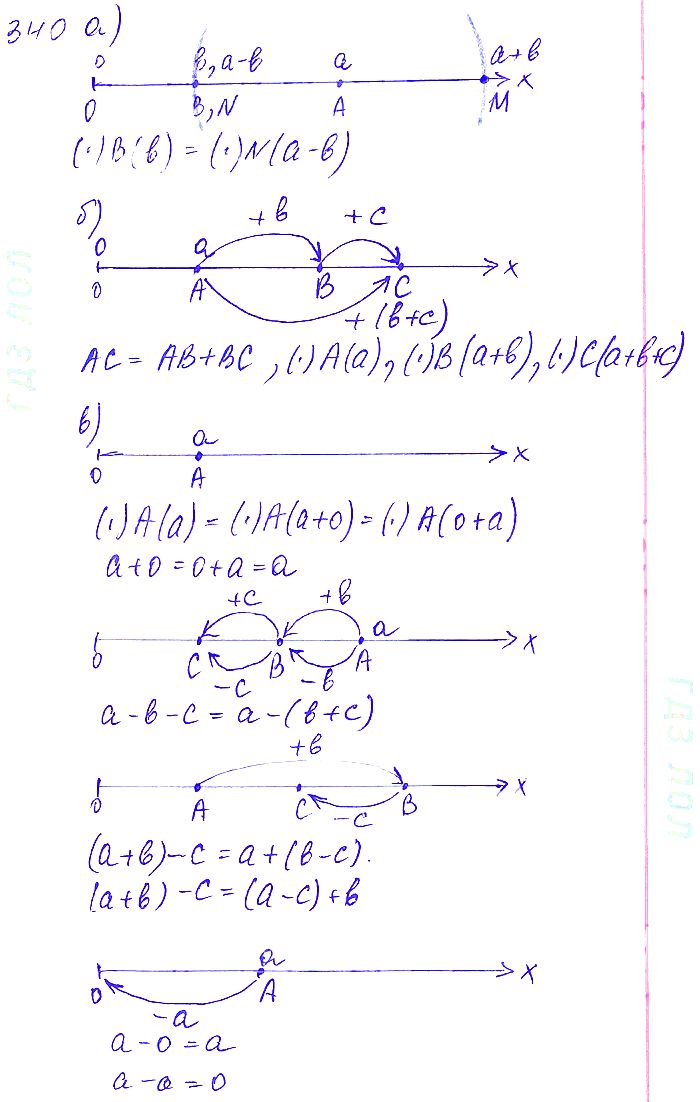 340 а)
0 в, а-в а а+в
0 В, N А М х
(·)В(в) = (·)N(а-в)
б) +в +с
0 а
0 А В С х
+(в+с)
АС = АВ+ВС , (·)А(а), (·)В(а+в), (·)С(а+в+с)
в)
а
0 А х
(·)А(а) = (·)А(а+0) = (·)А(0+а)
а+0 = 0+а = а
+с +в
а
0 С В А х
-с -в
а-в-с = а-(в+с)
+в
0 А С В х
-с
(а+в)-с = а+(в-с).
(а+в)-с = (а-с)+в
а
0 А х
-а
а-0 = а
а-а = 0
гдз лол
гдз лол